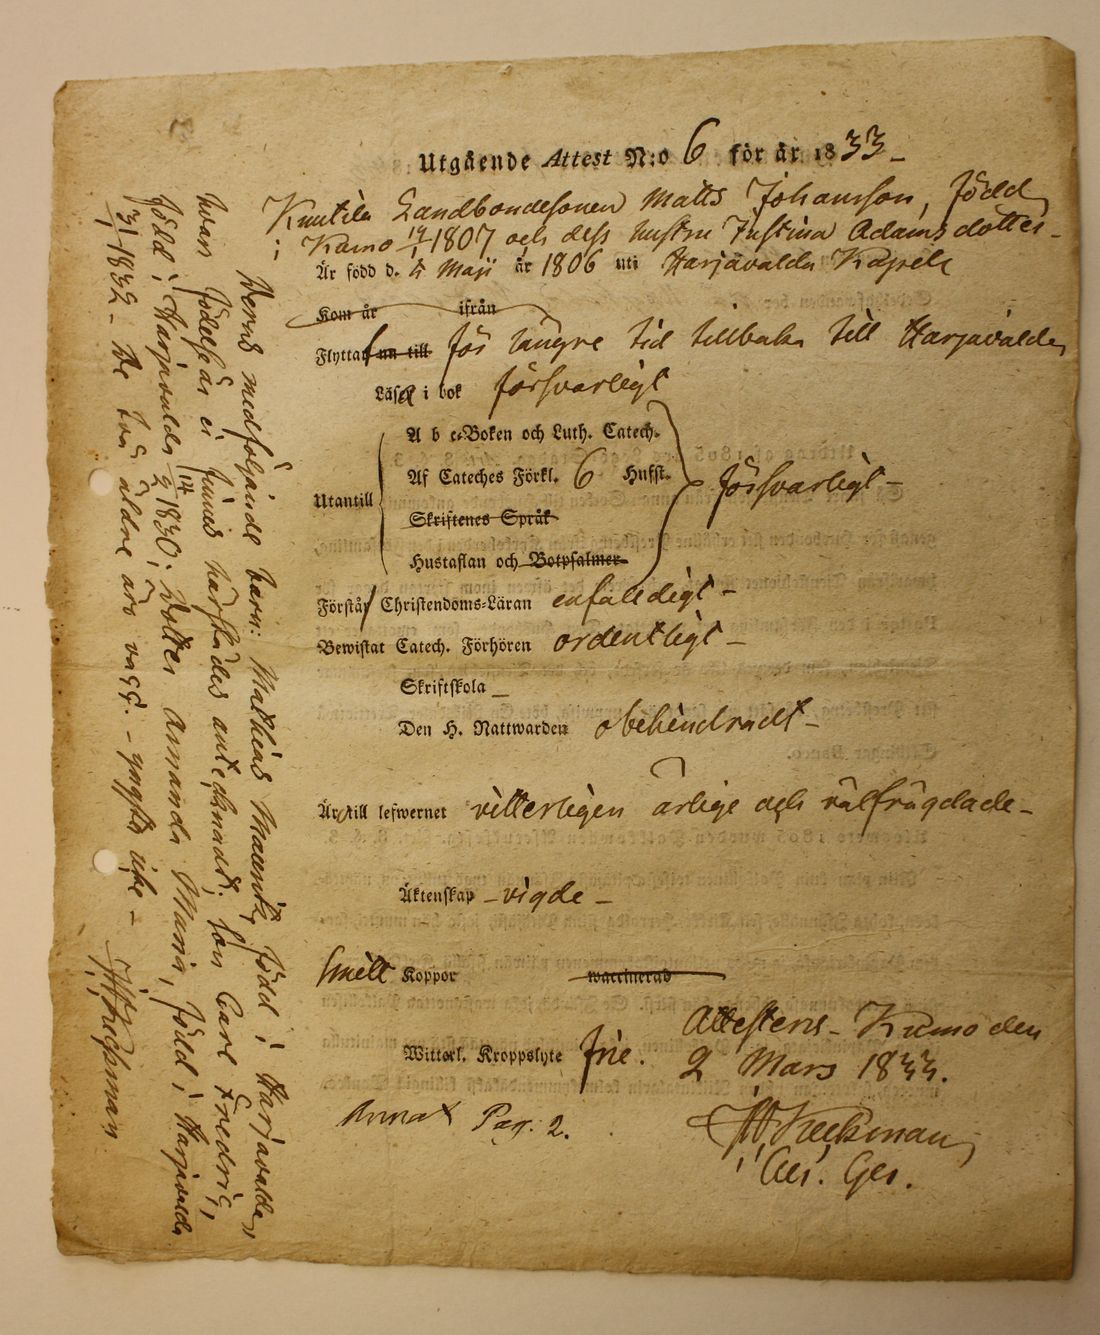 Utgående Attest N:o 6 för år 1833 -
Knutila Landbondesonen Matts Johansson, född
i Kumo 17/1 1807 och dess hustru Justina Adamsdotter -
Är född d. 4 Maji år 1806 uti Harjavalda Kapell
Kom år ifrån
Flyttar nu till för längre tid tillbaka till Harjavalda
Läser i bok försvarligt
A b c-Boken och Luth. Catech.
Af Cateches Förkl. 6 Hufst.
Utantill försvarligt -
Skriftenes Språk
Hustaflan och Botpsalmer
Förstår Christendoms-Läran enfaldigt -
Bewistat Catech. Förhören ordentligt -
Skriftskola -
Den H. Nattwarden obehindradt -
Är till lefwernet vitterligen ärlige och välfrägdade -
Äktenskap - vigde -
haft Koppor waccinerad
Witterl. Kroppslyte frie.
Attesteras - Kumo den
2 Mars 1833.
Annat Pag. 2.
Heckman
Deras medföljande barn: Mathias Mauritz, född i Harjavalda,
hvars födelseår ei finnes härstädes antecknadt; son Carl Fredric,
född i Harjvalda 1830; dotter Amanda Maria, född i Harjvalda
1832 - De två äldre äro vacc. - yngsta icke -
Heckman